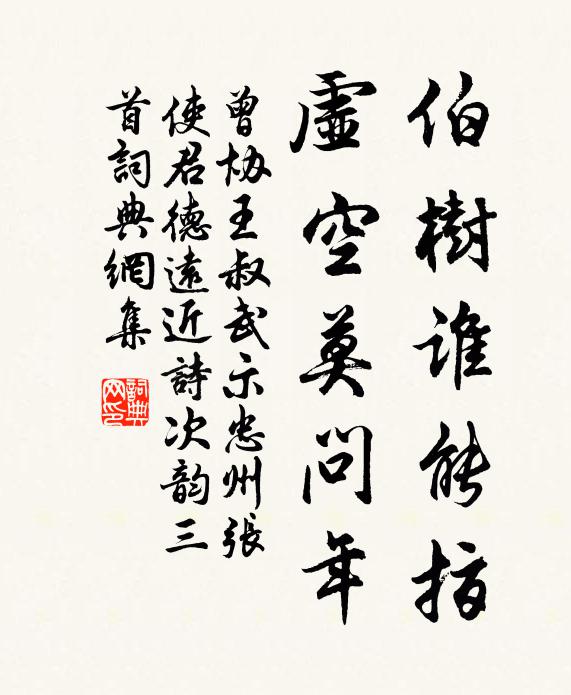 伯樹誰能指
虛空莫問年
曾協王叔武示忠州張
使君德遠近詩次韵三
首詞典網集
詞典
网印